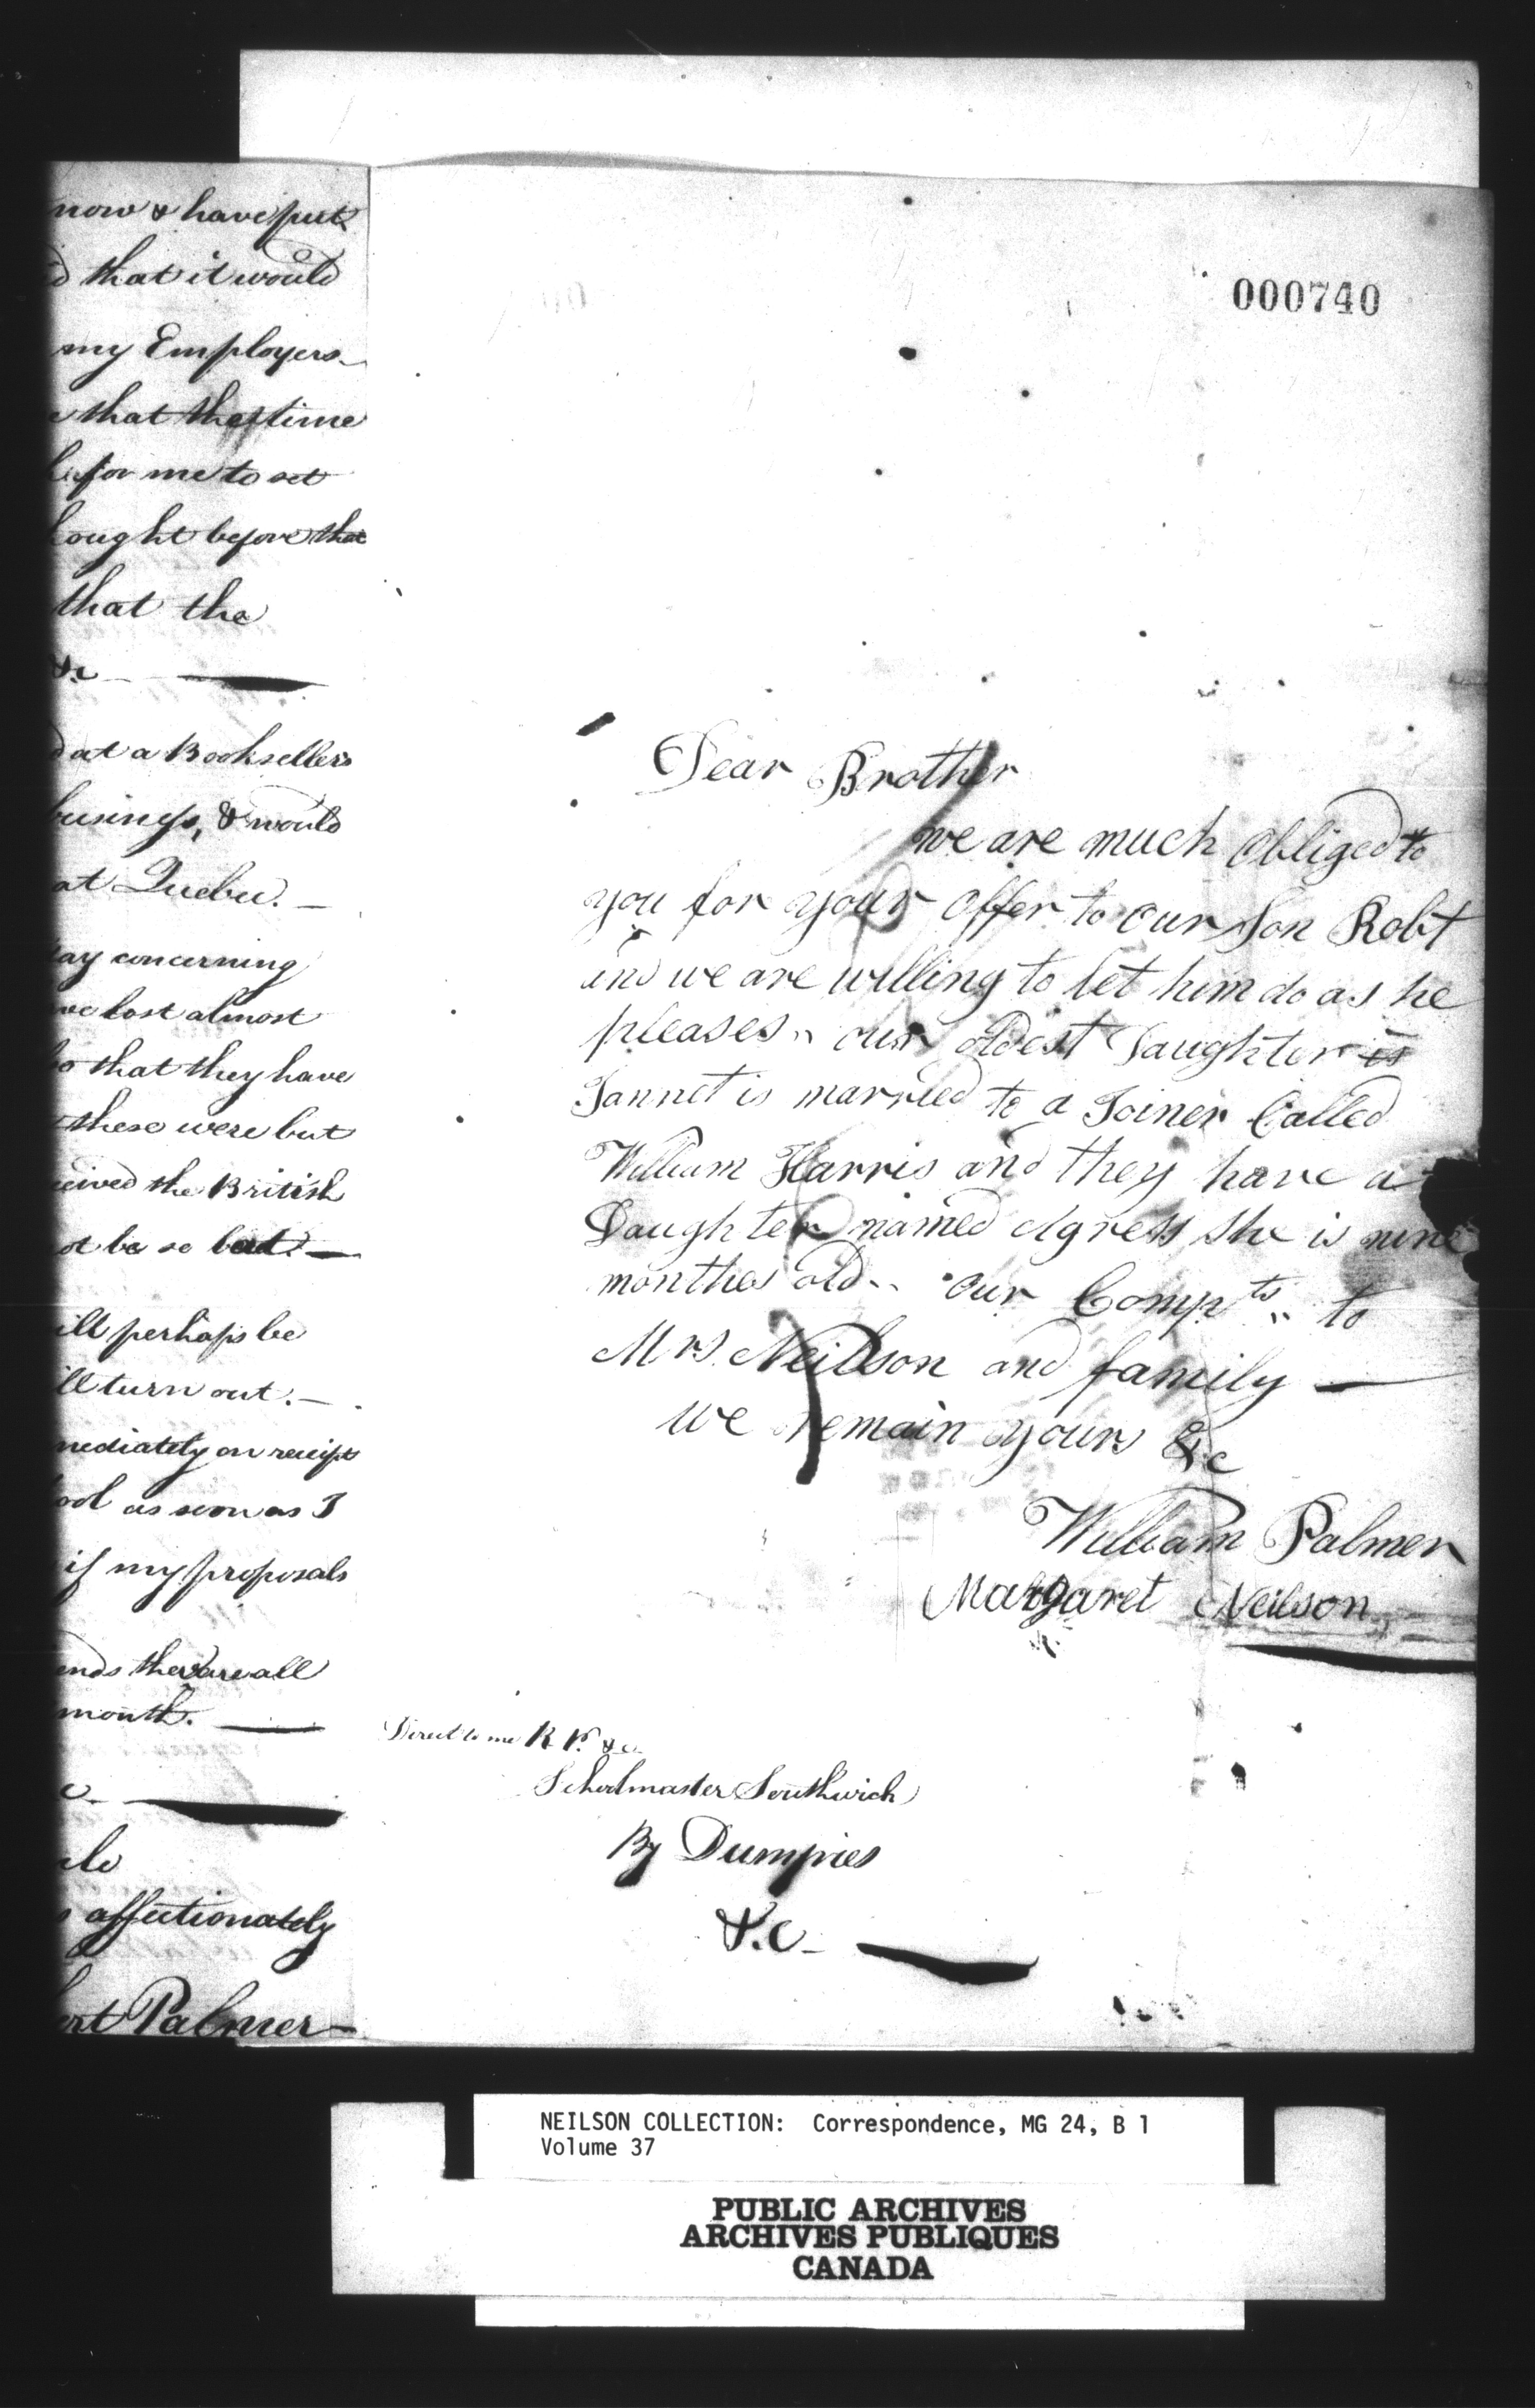 now & have put
that it would
my Employers
that the time
for me to set
ought before that
that the
&c
at a Booksellers
business, & would
at Quebec.
ay concerning
we lost almost
so that they have
these were but
eived the British
ot be so bad.
ill perhaps be
ill turn out.
mediately on receipt
ool as soon as I
if my proposals
ends there are all
month.
c
affectionately
ert Palmer
000740
Dear Brother
we are much obliged to
you for your offer to our Son Robt
and we are willing to let him do as he
pleases,, our oldest Daughter is
Jannet is married to a Joiner Called
William Harris and they have a
Daughter named Agness she is nine
monthes old.. our Compts,, to
Mrs. Neilson and family —
we remain yours &c
William Palmer
Margaret Neilson
Direct to me R. P. &c
Schoolmaster Southwick
By Dumfries
&.c
NEILSON COLLECTION: Correspondence, MG 24, B 1
Volume 37
PUBLIC ARCHIVES
ARCHIVES PUBLIQUES
CANADA